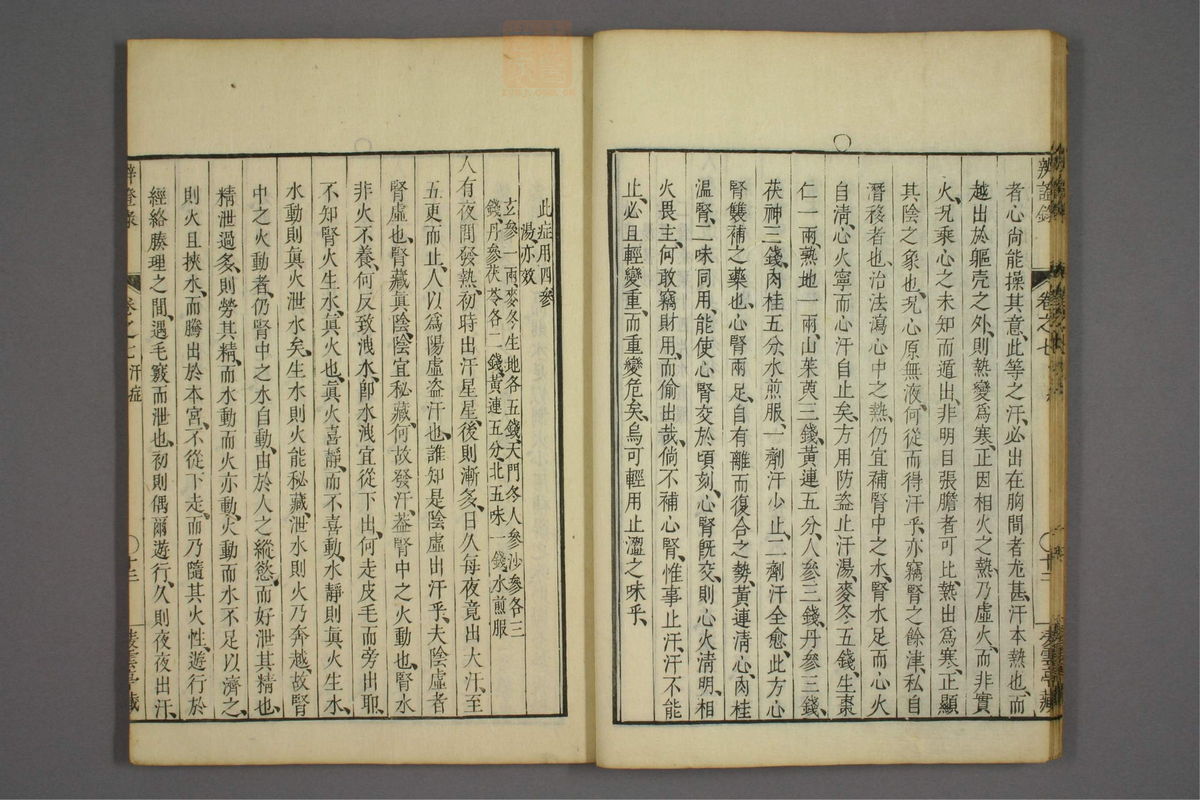 辨證錄 卷之七 十三
者心尚能操其意、此等之汗、必出在胸間者尤甚、汗本熱也、而
越出於軀壳之外、則熱變爲寒、正因相火之熱、乃虛火、而非實
火、况乘心之未知而遁出、非明目張膽者可比、熱出爲寒、正顯
其陰之象也、况心原無液、何從而得汗乎、亦竊腎之餘津、私自
潛移者也、治法瀉心中之熱、仍宜補腎中之水、腎水足而心火
自淸、心火寧而心汗自止矣、方用防盗止汗湯、麥冬五錢、生棗
仁一兩、熟地一兩、山茱萸三錢、黃連五分、人參三錢、丹參三錢、
茯神三錢、肉桂五分、水煎服、一劑汗少止、二劑汗全愈、此方心
腎雙補之藥也、心腎兩足、自有離而復合之勢、黃連淸心、肉桂
溫腎、二味同用、能使心腎交於頃刻、心腎旣交、則心火淸明、相
火畏主、何敢竊財用、而偷出哉、倘不補心腎、惟事止汗、汗不能
止、必且輕變重、而重變危矣、烏可輕用止澀之味乎、
此症用四參
湯、亦效
玄參一兩、麥冬生地各五錢、天門冬人參沙參各三
錢、丹參茯苓各二錢、黃連五分、北五味一錢、水煎服
人有夜間發熱、初時出汗星星、後則漸多、日久每夜竟出大汗、至
五更而止、人以爲陽虛盗汗也、誰知是陰虛出汗乎、夫陰虛者
腎虛也、腎藏眞陰、陰宜秘藏、何故發汗、葢腎中之火動也、腎水
非火不養、何反致洩水、卽水洩宜從下出、何走皮毛而旁出耶、
不知腎火生水、眞火也、眞火喜靜、而不喜動、水靜則眞火生水、
水動則眞火泄水矣、生水則火能秘藏、泄水則火乃奔越、故腎
中之火動者、仍腎中之水自動、由於人之縱慾、而好泄其精也、
精泄過多、則勞其精、而水動而火亦動、火動而水不足以濟之、
則火且挾水、而騰出於本宮、不從下走、而乃隨其火性、遊行於
經絡腠理之間、遇毛竅而泄也、初則偶爾遊行、久則夜夜出汗、
辨證錄 卷之七 汗症 十三